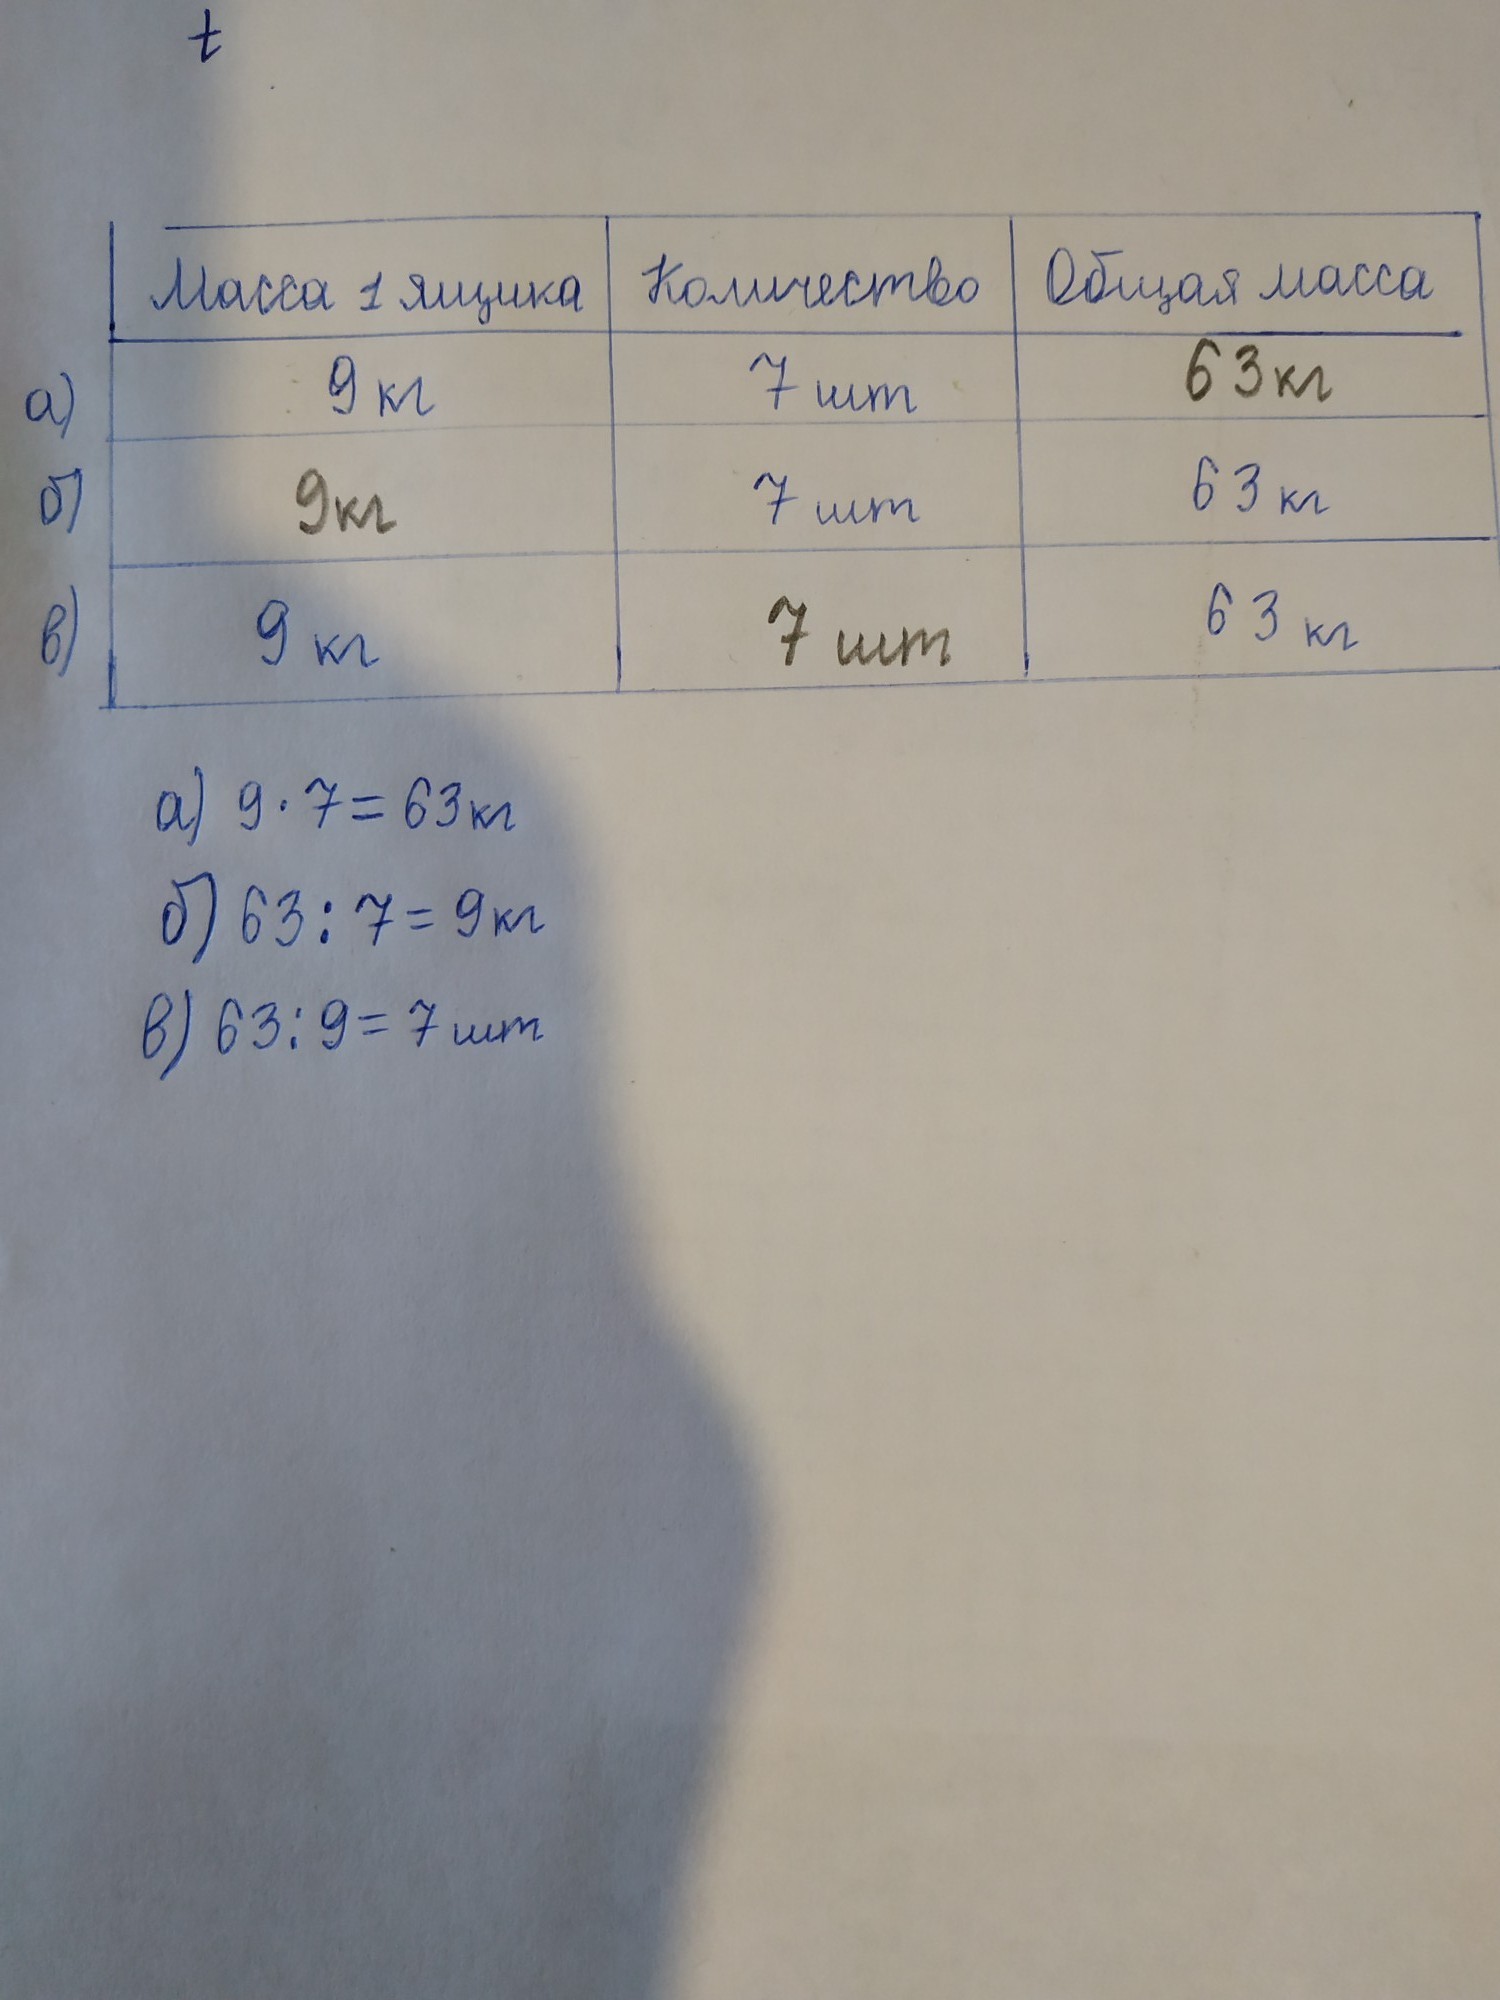 t
Масса 1 ящика Количество Общая масса
а) 9 кг 7 шт 63 кг
б) 9 кг 7 шт 63 кг
в) 9 кг 7 шт 63 кг
а) 9 · 7 = 63 кг
б) 63 : 7 = 9 кг
в) 63 : 9 = 7 шт